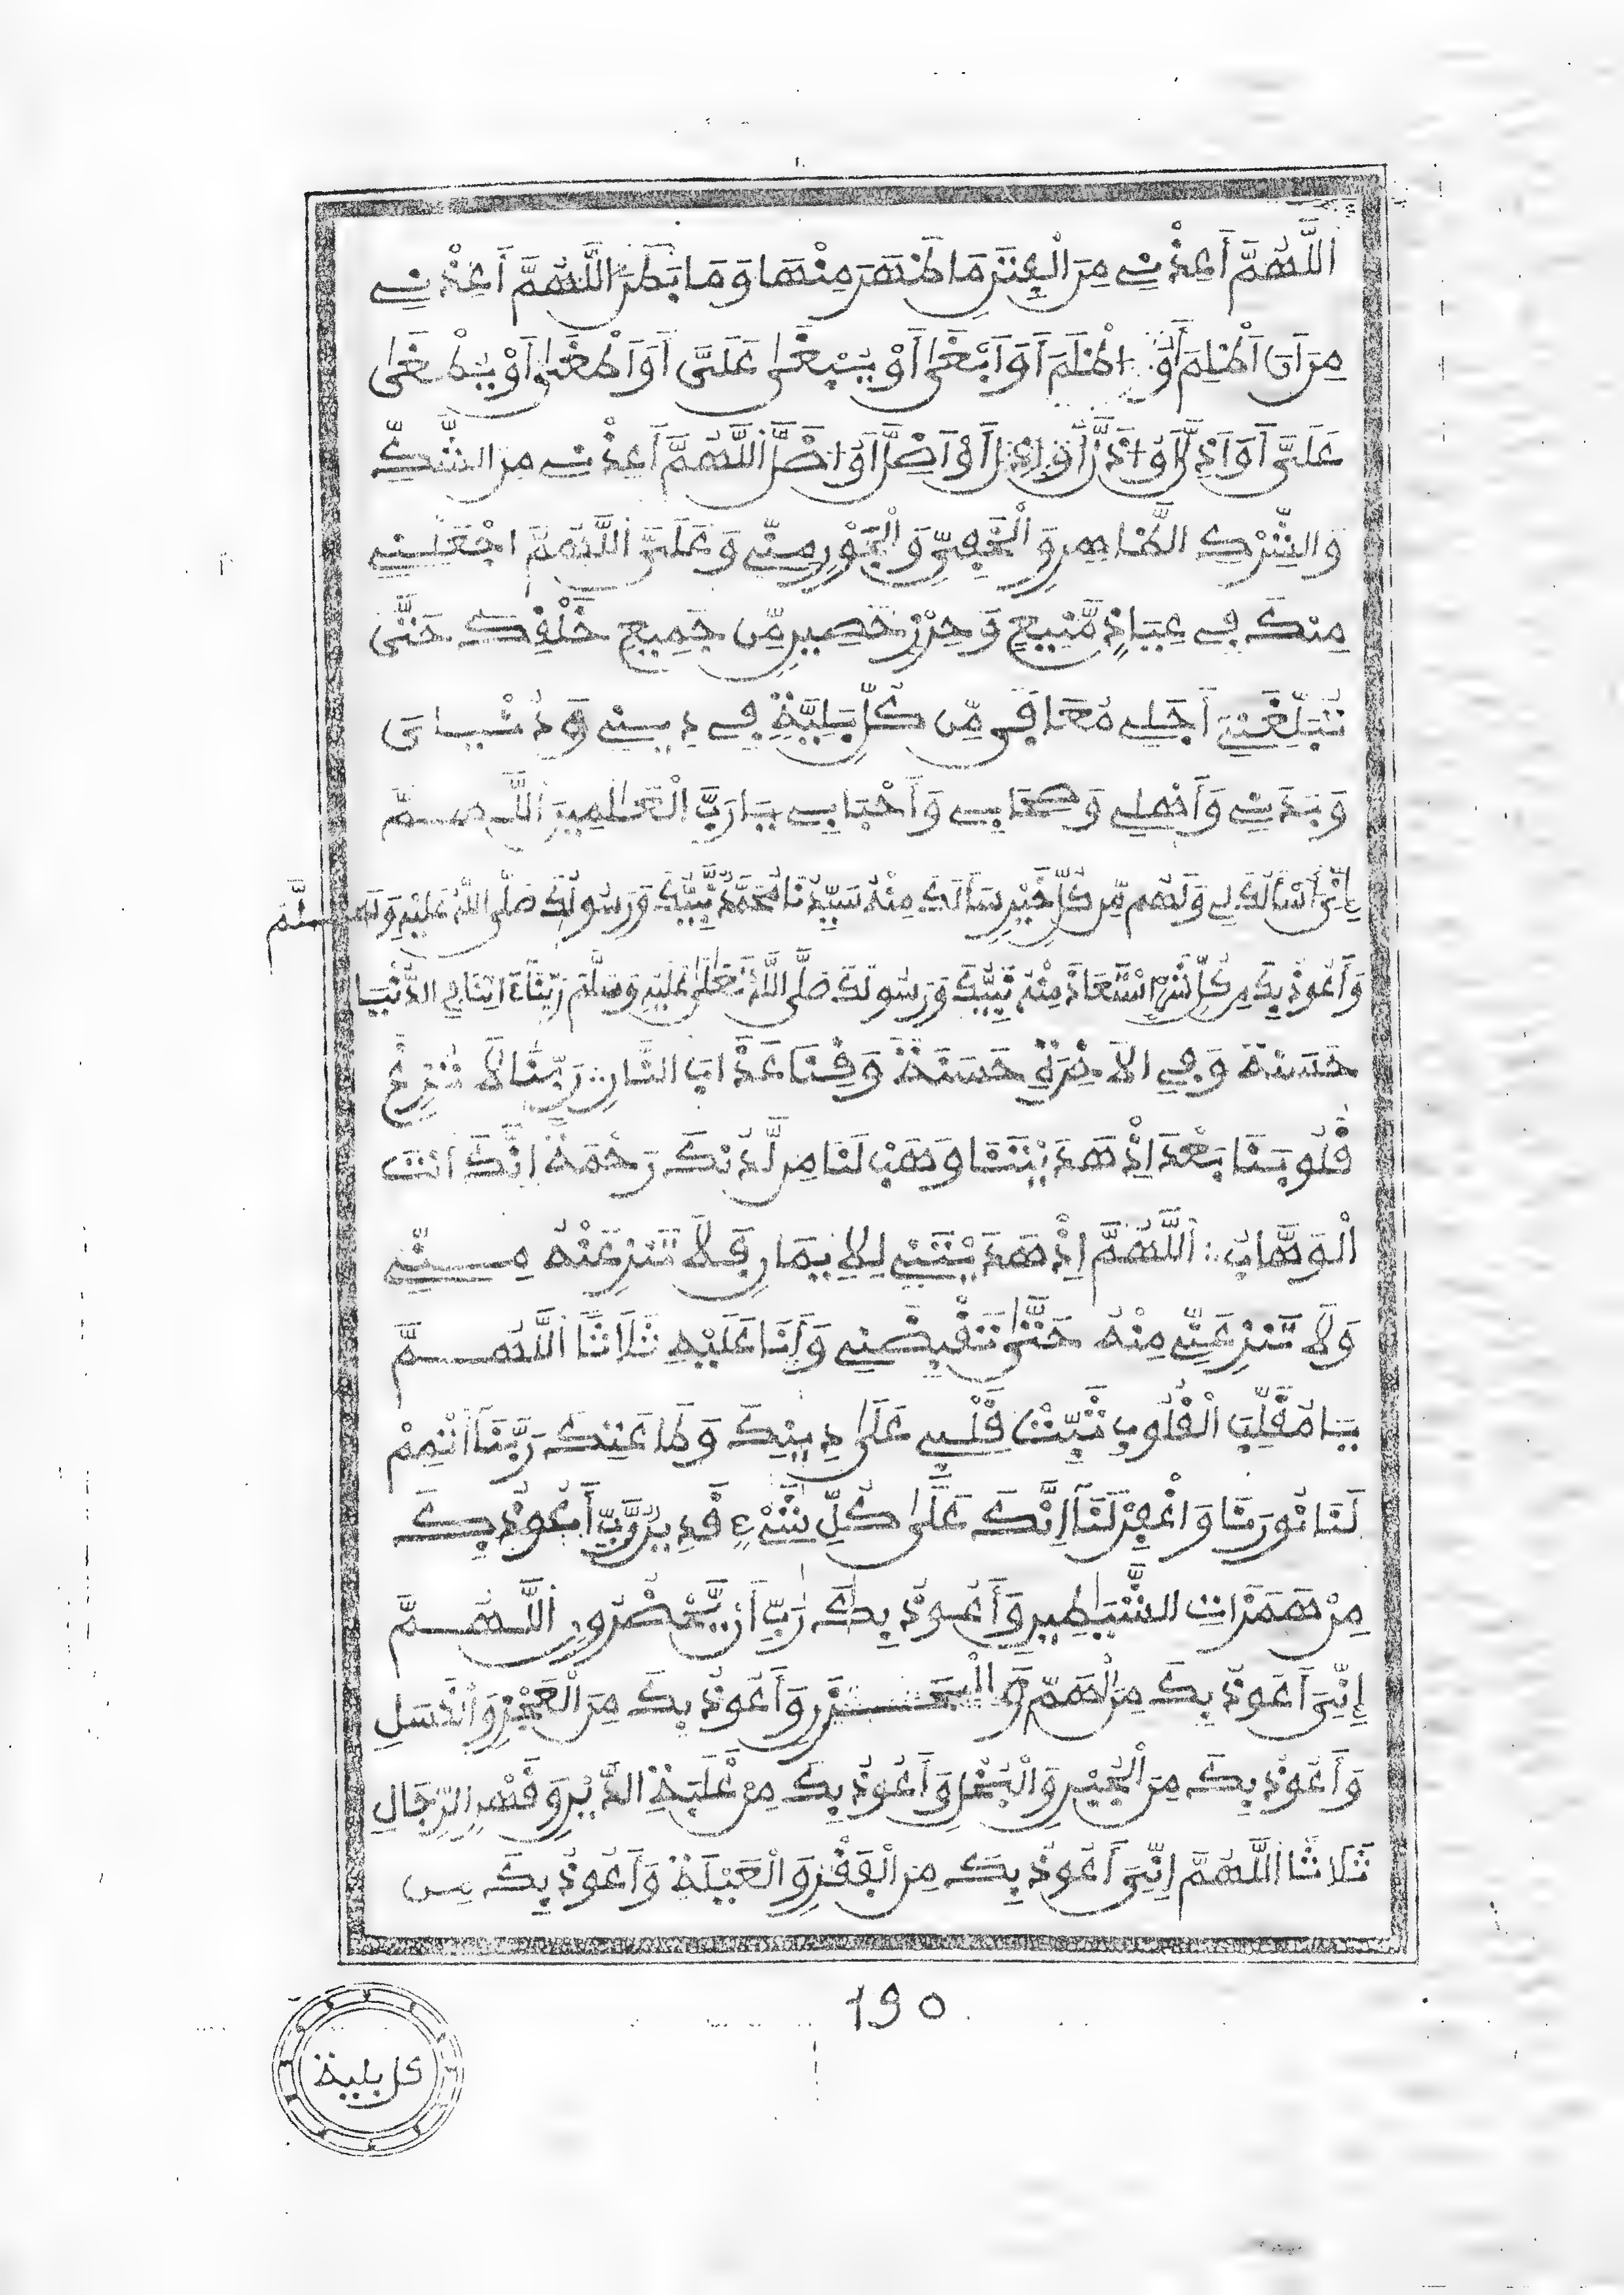 اَللَّهُمَّ أَعِذْنِے مِنَ الْفِتَنِ مَا ظَهَرَ مِنْهَا وَمَا بَطَنَ اَللَّهُمَّ أَعِذْنِے
مِنَ اَنَ اَظْلِمَ أَوُ اظْلَمَ أَوَ اَبْغَىٰ أَوْ يُبْغَىٰ عَلَىَّ أَوَ اَطْغَىٰ أَوْ يُطْغَىٰ
عَلَىَّ أَوَ اَذِلَّ أَوُ اذَلَّ أَوَ اَضِلَّ أَوُ اضَلَّ اَللَّهُمَّ أَعِذْنِے مِنَ الشَّكِّ
وَالشِّرْكِ الظَّاهِرِ وَالْخَفِيِّ وَالْجَوْرِ مِنِّے وَعَلَىَّ اَللَّهُمَّ اجْعَلْنِے
مِنكَ فِے عِيَاذٍ مَّنِيعٍ وَحِرْزٍ حَصِينٍ مِّن جَمِيعِ خَلْقِكَ حَتَّى
تُبَلِّغَنِےَ أَجَلِے مُعَافًى مِّن كُلِّ بَلِيَّةٍ فِے دِينِے وَدُنْيَاىَ
وَبَدَنِے وَأَهْلِے وَصِحَابِے وَأَحْبَابِے يَا رَبَّ الْعَٰلَمِينَ اَللَّهُمَّ
إِنِّىَ أَسْأَلُكَ لِے وَلَهُم مِّن كُلِّ خَيْرٍ سَأَلَكَ مِنْهُ سَيِّدُنَا مُحَمَّدٌ نَّبِيُّكَ وَرَسُولُكَ صَلَّى اللَّهُ عَلَيْهِ وَسَلَّمَ
وَأَعُوذُ بِكَ مِن كُلِّ شَرٍّ اسْتَعَاذَ مِنْهُ نَبِيُّكَ وَرَسُولُكَ صَلَّى اللَّهُ تَعَٰلَىٰ عَلَيْهِ وَسَلَّمَ رَبَّنَا ءَاتِنَا فِے الدُّنْيَا
حَسَنَةً وَفِے الاَخِرَةِ حَسَنَةً وَقِنَا عَذَابَ النَّارِ رَبَّنَا لاَ تُزِغْ
قُلُوبَنَا بَعْدَ اِذْ هَدَيْتَنَا وَهَبْ لَنَا مِن لَّدُنكَ رَحْمَةً اِنَّكَ أَنتَ
اَلْوَهَّابُ اَللَّهُمَّ إِذْ هَدَيْتَنِے لِلِايمَانِ فَلاَ تَنزِعْهُ مِنِّے
وَلاَ تَنزِعْنِے مِنْهُ حَتَّىٰ تَقْبِضَنِے وَأَنَا عَلَيْهِ ثَلاَثًا اَللَّهُمَّ
يَا مُقَلِّبَ الْقُلُوبِ ثَبِّتْ قَلْبِے عَلَىٰ دِينِكَ وَطَاعَتِكَ رَبَّنَا أَتْمِمْ
لَنَا نُورَنَا وَاغْفِرْ لَنَا إِنَّكَ عَلَىٰ كُلِّ شَےْءٍ قَدِيرٌ رَّبِّ أَعُوذُ بِكَ
مِنْ هَمَزَاتِ الشَّيَٰطِينِ وَأَعُوذُ بِكَ رَبِّ أَنْ يَّحْضُرُونِ اَللَّهُمَّ
إِنِّىَ أَعُوذُ بِكَ مِنَ الْهَمِّ وَالْحَزَنِ وَأَعُوذُ بِكَ مِنَ الْعَجْزِ وَالْكَسَلِ
وَأَعُوذُ بِكَ مِنَ الْجُبْنِ وَالْبُخْلِ وَأَعُوذُ بِكَ مِنْ غَلَبَةِ الدَّيْنِ وَقَهْرِ الرِّجَالِ
ثَلاَثًا اَللَّهُمَّ إِنِّىَ أَعُوذُ بِكَ مِنَ الْفَقْرِ وَالْعَيْلَةِ وَأَعُوذُ بِكَ مِن
190
كل بلية